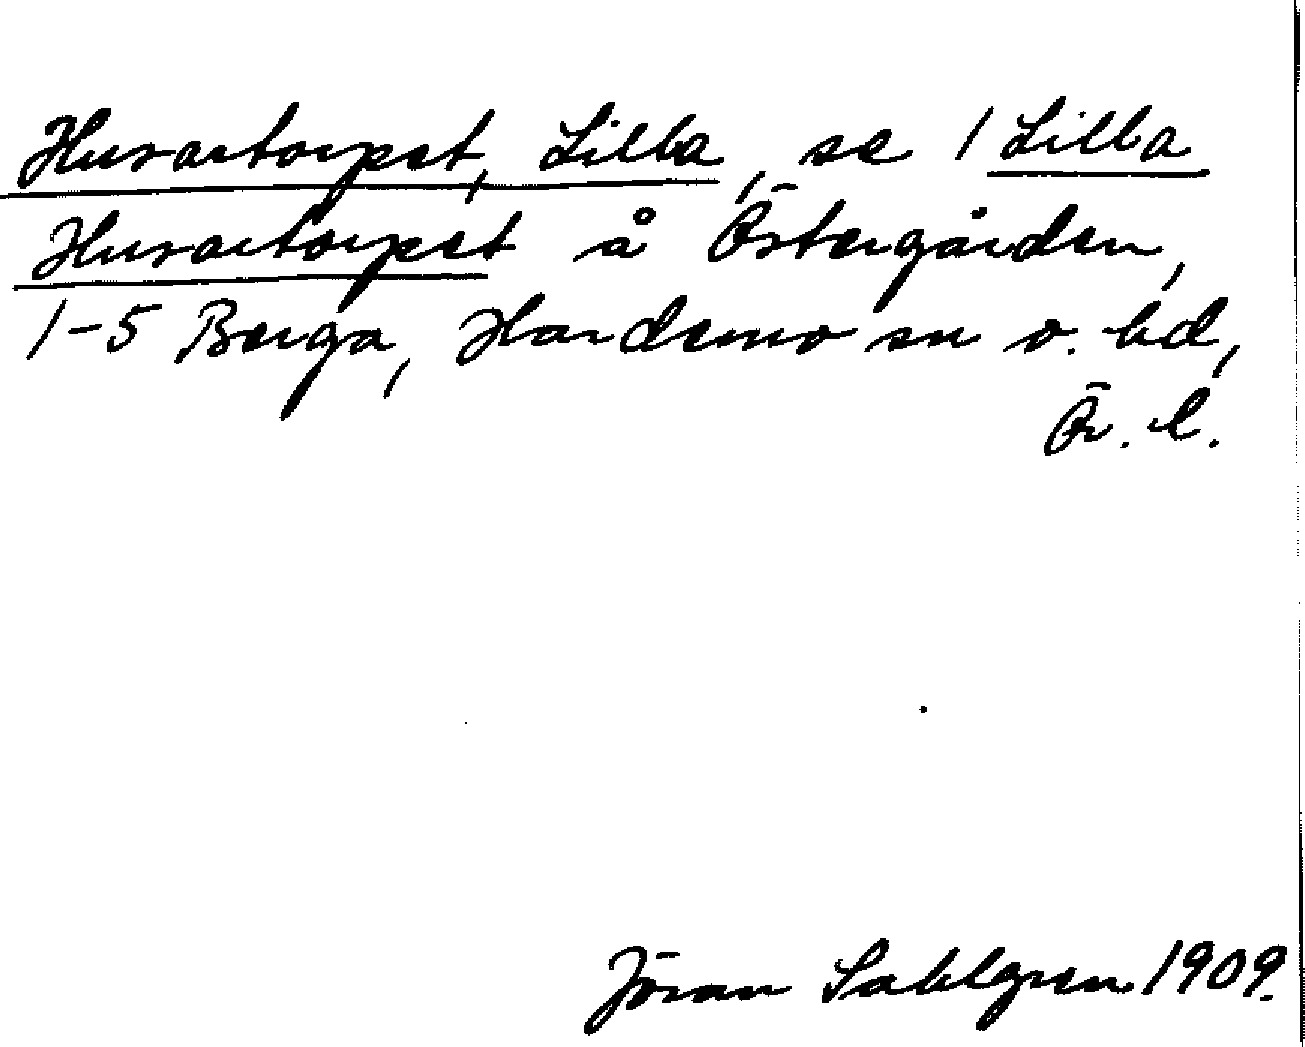 Husartorpet, Lilla, se 1 Lilla
Husartorpet å Östergården,
1-5 Berga, Hardemo sn o. hd,
Ör. l.
Jöran Sahlgren 1909.